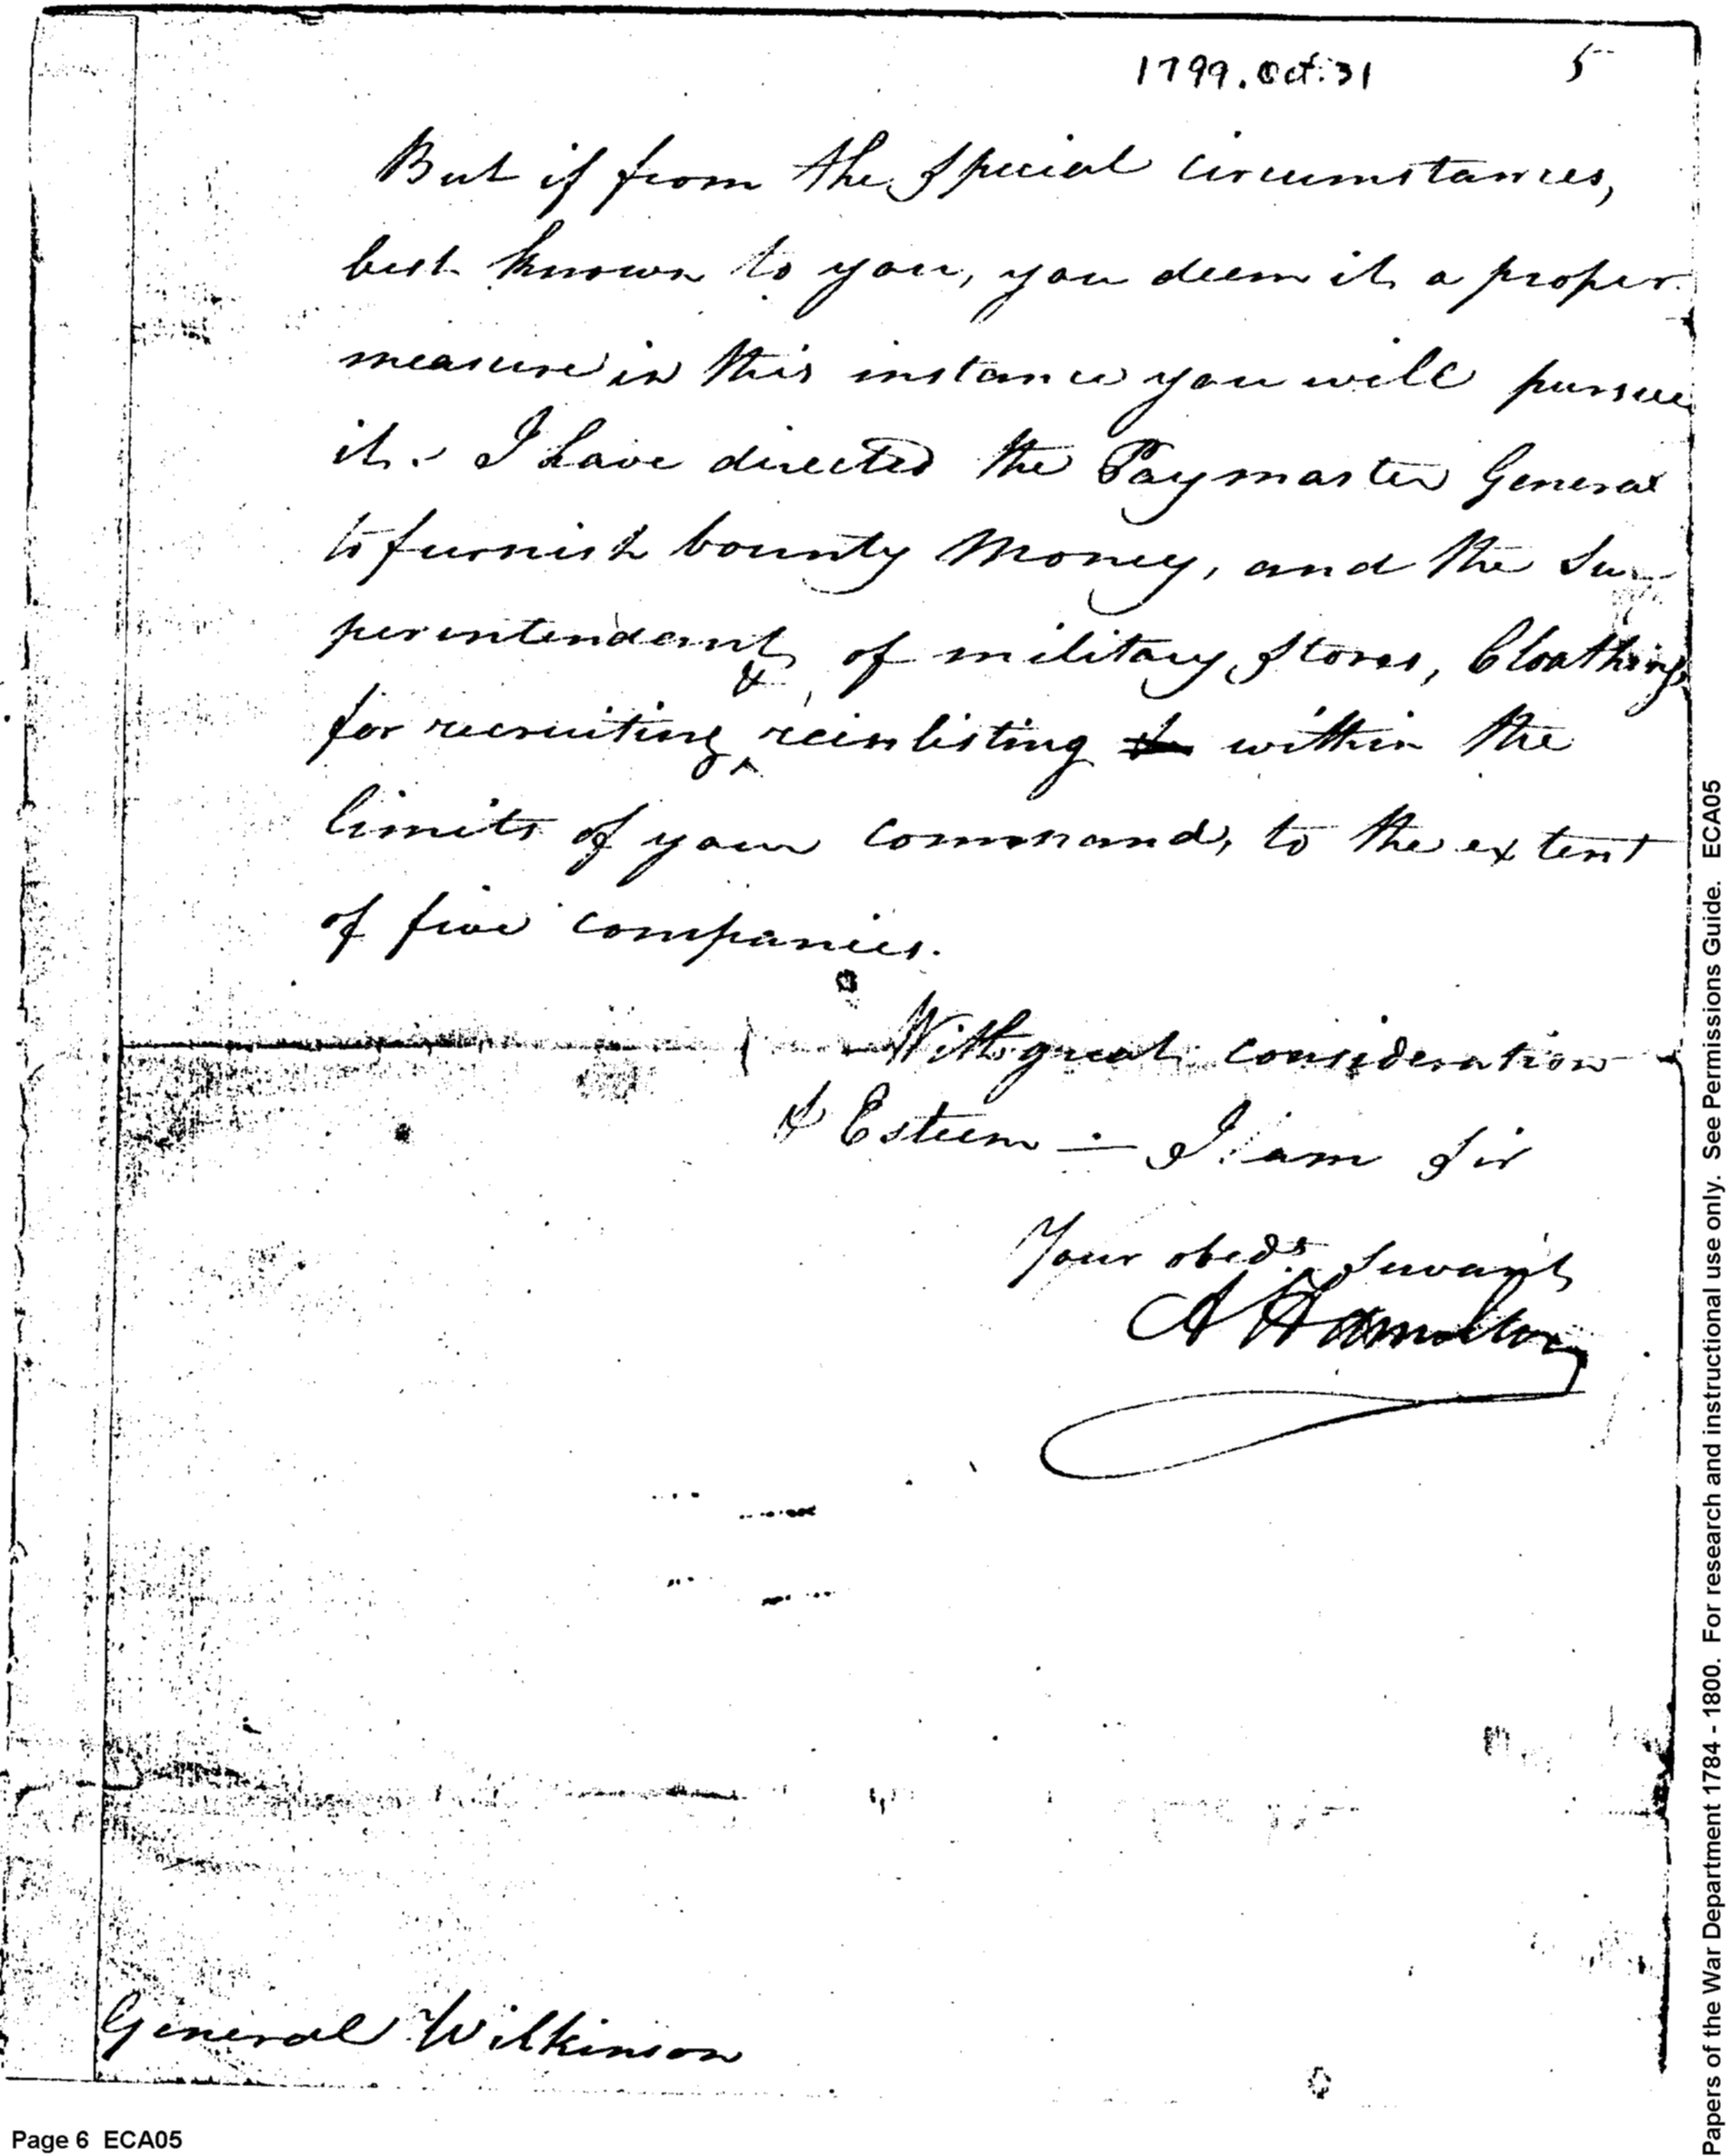 1799. Oct: 31
5
But if from the special circumstances,
best known to you, you deem it a proper
measure in this instance you will pursue
it. I have directed the Paymaster General
to furnish bounty Money, and the Su-
perintendant of military stores, Cloathing
&
for recruiting ^ reinlisting & within the
limits of your command, to the extent
of five companies.
With great consideration
& Esteem — I am Sir
Your obedt. Servant
A Hamilton
General Wilkinson
Page 6 ECA05
Papers of the War Department 1784 - 1800. For research and instructional use only. See Permissions Guide. ECA05